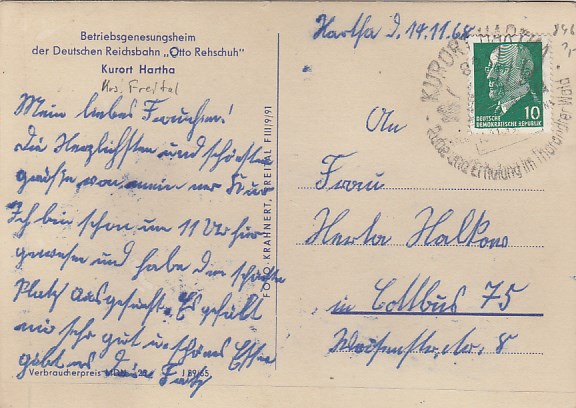 Betriebsgenesungsheim
der Deutschen Reichsbahn „Otto Rehschuh"
Kurort Hartha
Krs. Freital
Mein liebes Frauchen!
Die Herzlichsten und schönsten
grüße von meiner Kur
Ich bin schon um 11 Uhr hier
gewesen und habe den schönsten
Platz ausgesucht. Es gefällt
mir sehr gut u. schönes Essen
gibt es dein Fritz
Verbraucherpreis MDN I 89/65
FOTO-KRAHNERT, FREITAL F III/9/91
Hartha d. 14.11.68
KURORT HARTHA
und Erholung im Tharandter Wald
10
DEUTSCHE
DEMOKRATISCHE REPUBLIK
An
Frau
Herta Halkow
in Cottbus 75
Str. Nr. 8